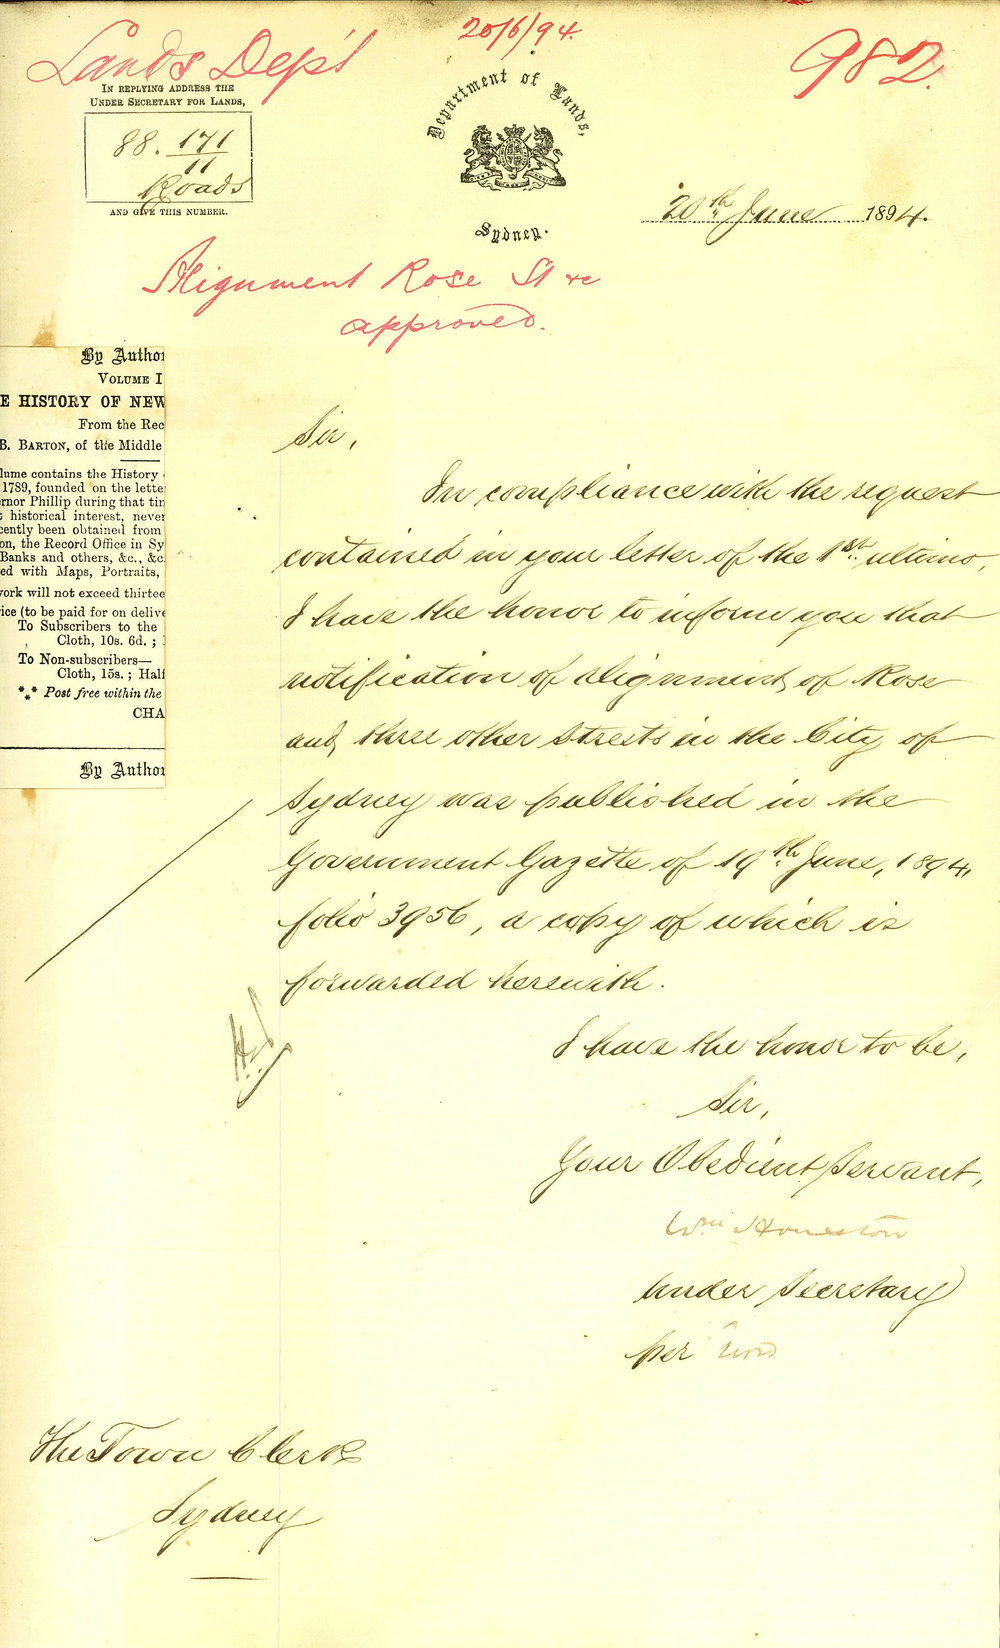 Lands Dep't
20/6/94.
982.
IN REPLYING ADDRESS THE
UNDER SECRETARY FOR LANDS,
88. 171
11
Roads
AND GIVE THIS NUMBER.
Department of Lands,
Sydney.
20th June 1894.
Alignment Rose St &c
approved.
By Author
VOLUME I
E HISTORY OF NEW
From the Rec
B. BARTON, of the Middle
lume contains the History
1789, founded on the lette
rnor Phillip during that tim
historical interest, never
cently been obtained from
on, the Record Office in Sy
Banks and others, &c., &c.
ed with Maps, Portraits,
ork will not exceed thirtee
ice (to be paid for on delive
To Subscribers to the
Cloth, 10s. 6d. ;
To Non-subscribers—
Cloth, 15s. ; Half
*** Post free within the
CHA
By Author
Sir,
In compliance with the request
contained in your letter of the 1st. ultimo,
I have the honor to inform you that
notification of alignment of Rose
and three other Streets in the City of
Sydney was published in the
Government Gazette of 19th June, 1894,
folio 3956, a copy of which is
forwarded herewith.
I have the honor to be,
Sir,
Your Obedient Servant,
Wm Houston
Under Secretary
per
The Town Clerk
Sydney